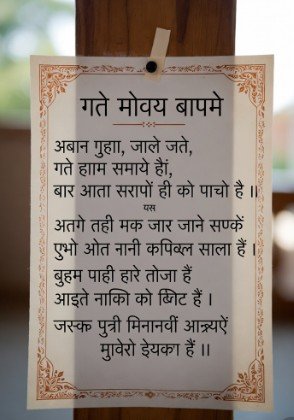 गते मोवय बापमे
अबान गुहाा, जाले जते,
गते हााम समाये हैां,
बार आता सरापों ही को पाचो है ॥
यस
अतगे तही मक जार जाने सण्कें
एभो ओत नानी कपिब्ल साला हैं ।
बुहम पाही हारे तोजा हैं
आइते नाकिा को हैं ।
जस्क पुत्री मिनानवीं
हैं ।।